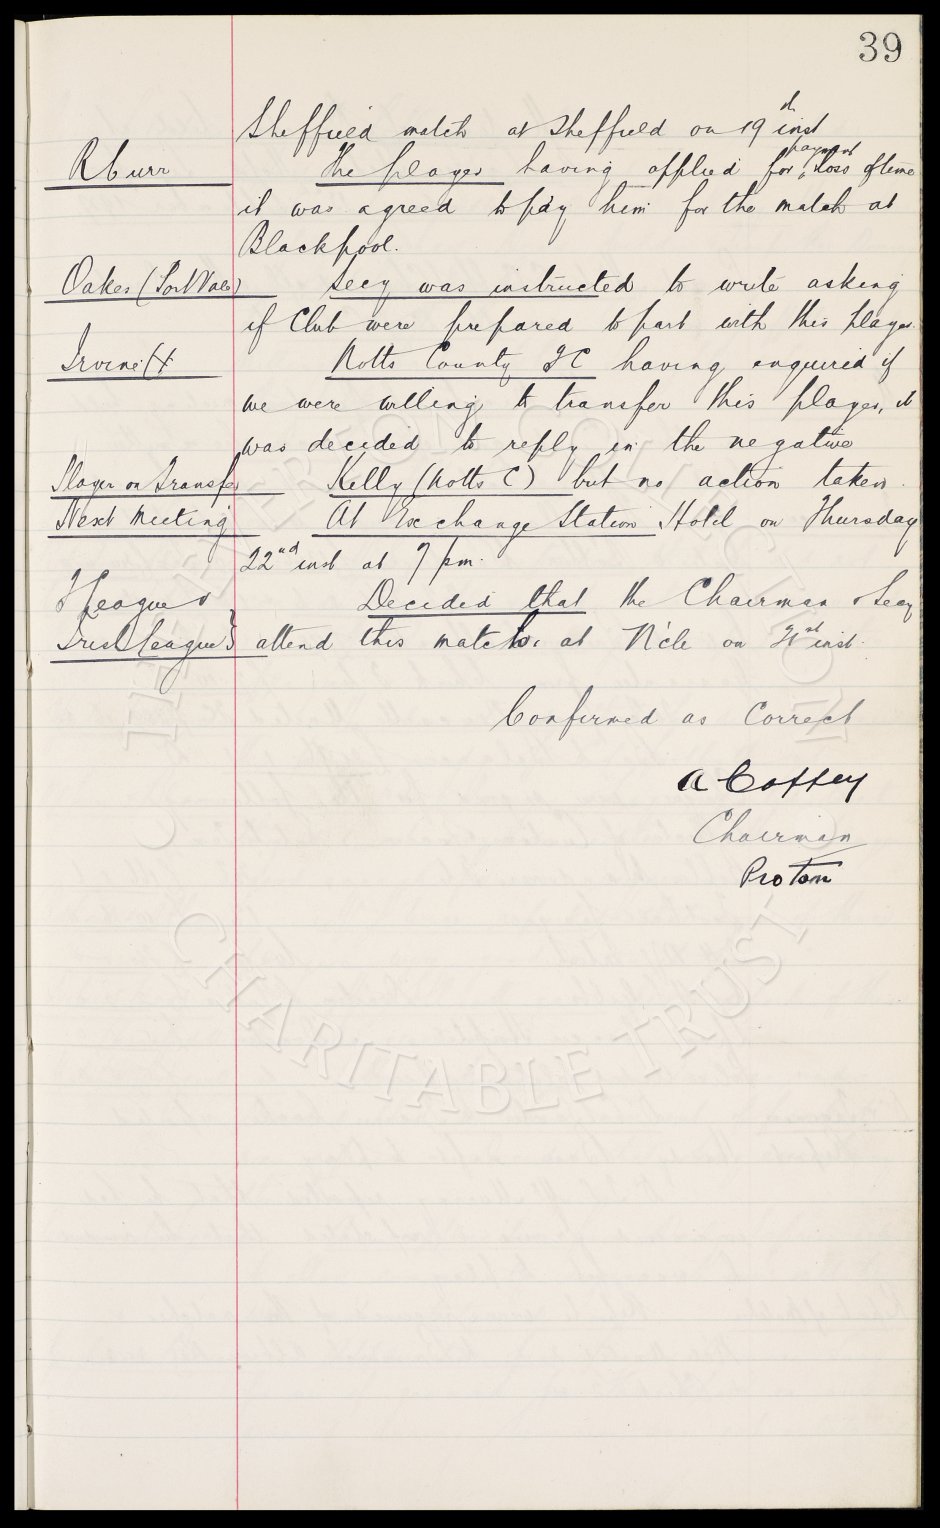 39
Sheffield match at Sheffield on 19th inst
R Curr The player having applied for payment loss of time
it was agreed to pay him for the match at
Blackpool.
Oakes (Port Vale) Secy was instructed to write asking
if Club were prepared to part with this player.
Irvine Notts County FC having enquired if
we were willing to transfer this player, it
was decided to reply in the negative
Player on Transfer Kelly (Notts C) but no action taken.
Next Meeting At Exchange Station Hotel on Thursday
22nd inst at 7 pm.
F League v Decided that the Chairman & Secy
Irish League} attend this match at N'cle on 21st inst.
Confirmed as Correct
A Coffey
Chairman
Pro Tem
THE EVERTON COLLECTION
CHARITABLE TRUST